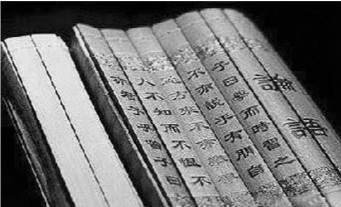 論語
子曰學而時習之
不亦說乎有朋自
遠方來不亦樂乎
人不知而不慍不
亦君子乎有子曰